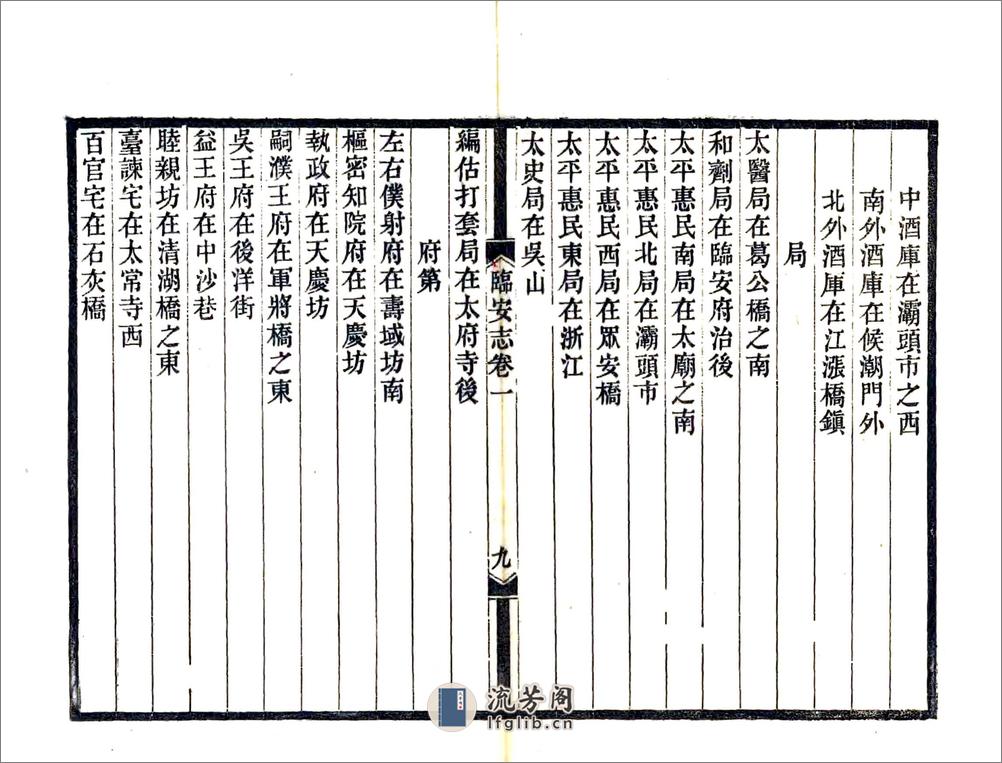 中酒庫在灞頭市之西
南外酒庫在候潮門外
北外酒庫在江漲橋鎮
局
太醫局在葛公橋之南
和劑局在臨安府治後
太平惠民南局在太廟之南
太平惠民北局在灞頭市
太平惠民西局在眾安橋
太平惠民東局在浙江
太史局在吳山
臨安志卷一
九
編估打套局在太府寺後
府第
左右僕射府在壽域坊南
樞密知院府在天慶坊
執政府在天慶坊
嗣濮王府在軍將橋之東
吳王府在後洋街
益王府在中沙巷
睦親坊在清湖橋之東
臺諫宅在太常寺西
百官宅在石灰橋
流芳阁
lfglib.cn